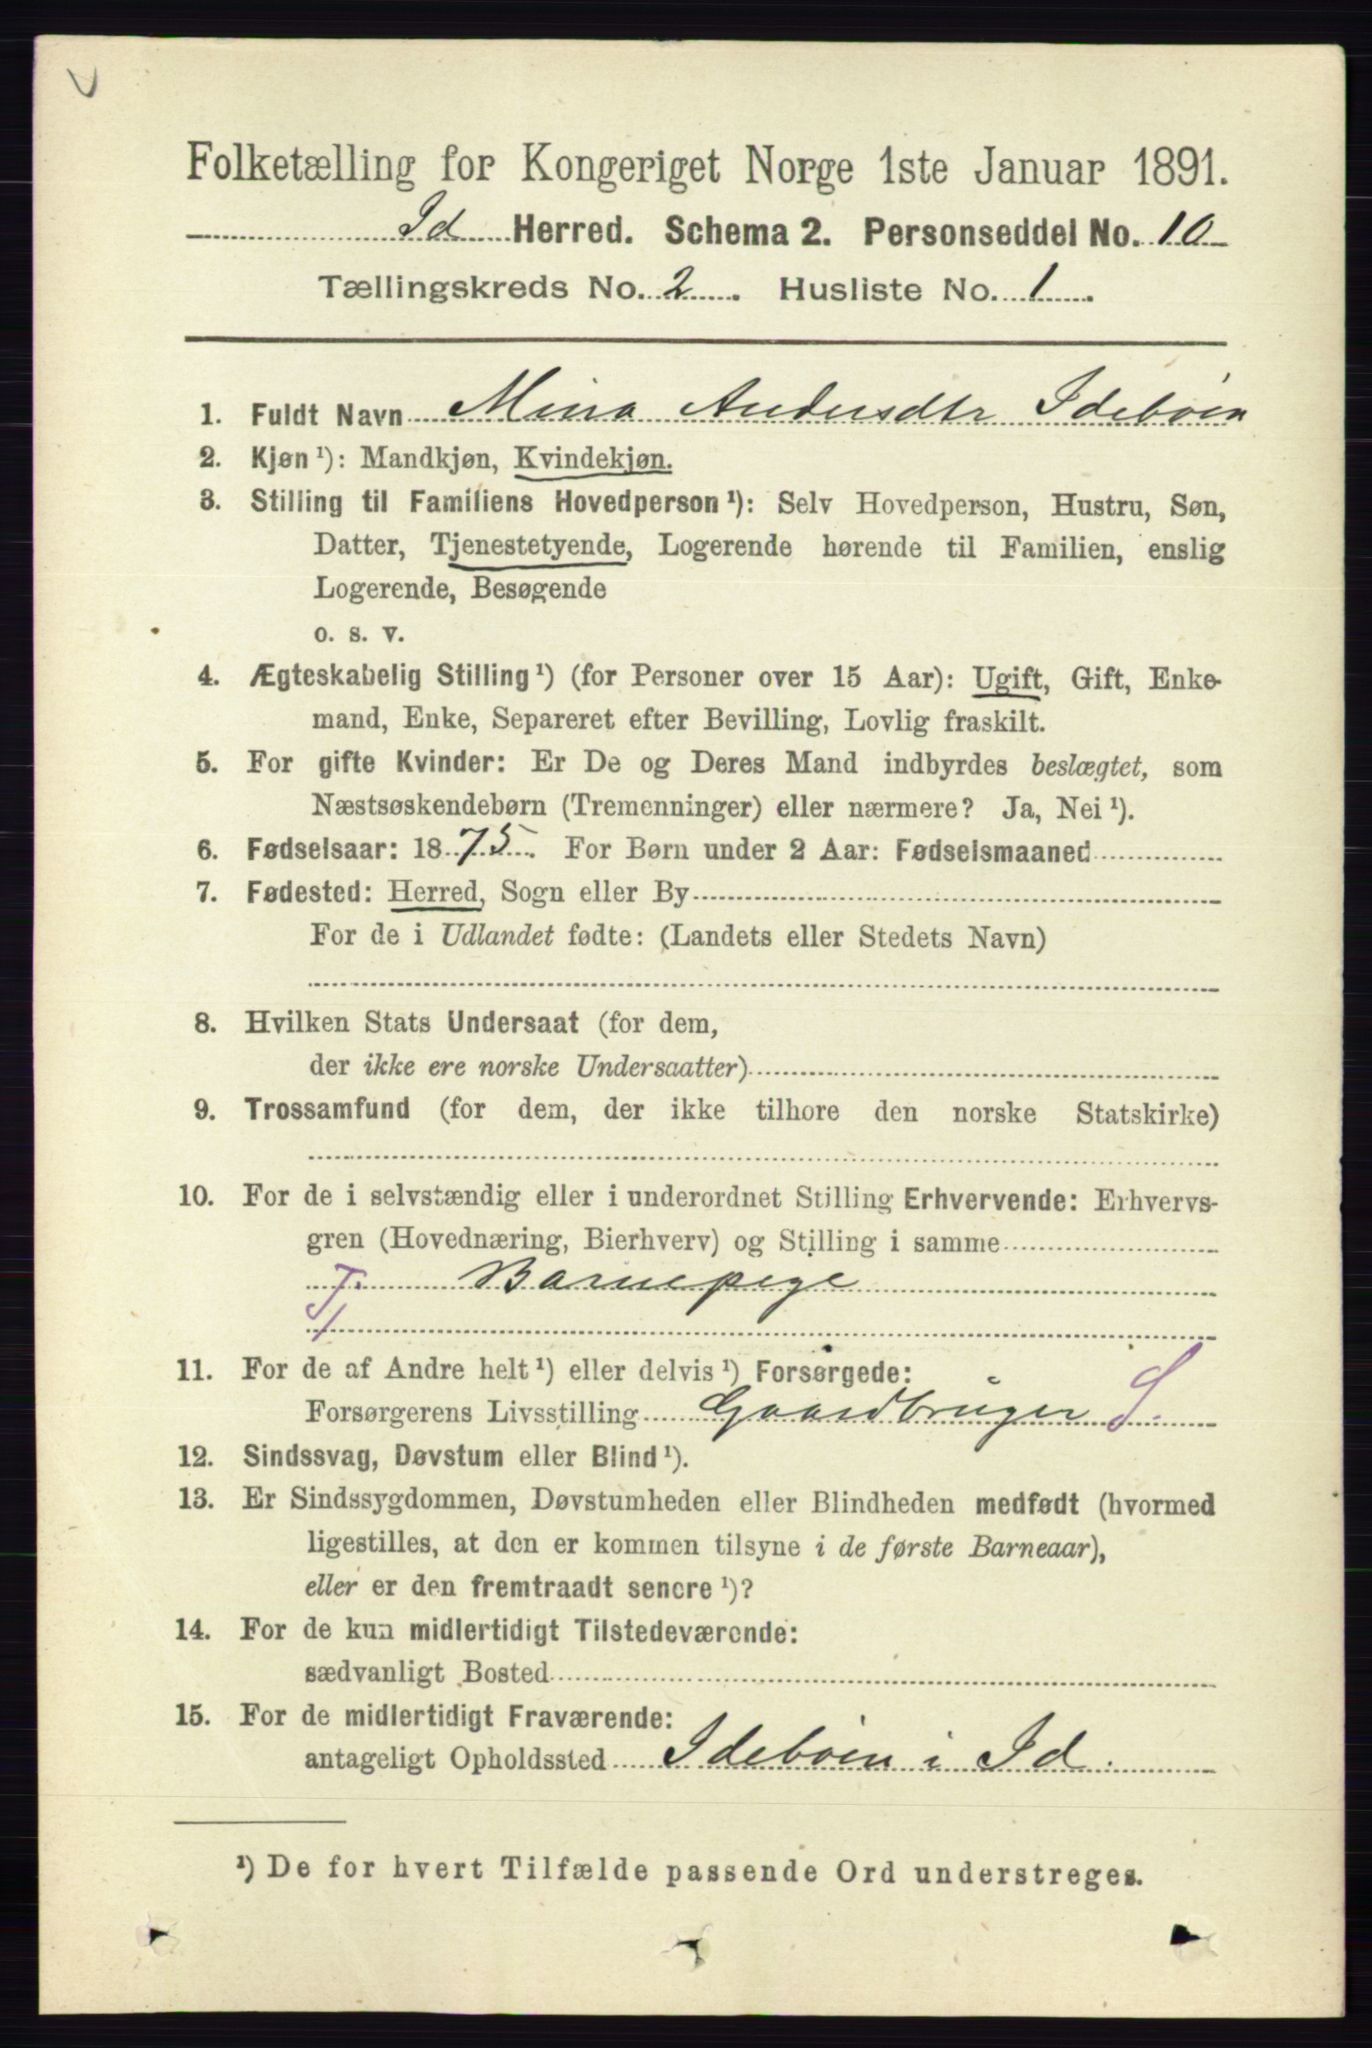 Folketælling for Kongeriget Norge 1ste Januar 1891.
Id Herred. Schema 2. Personseddel No. 10
Tællingskreds No. 2. Husliste No. 1.
1. Fuldt Navn Mina Andersdtr Idebøen
2. Kjøn ¹): Mandkjøn, Kvindekjøn.
3. Stilling til Familiens Hovedperson ¹): Selv Hovedperson, Hustru, Søn,
Datter, Tjenestetyende, Logerende hørende til Familien, enslig
Logerende, Besøgende
o. s. v.
4. Ægteskabelig Stilling ¹) (for Personer over 15 Aar): Ugift, Gift, Enke-
mand, Enke, Separeret efter Bevilling, Lovlig fraskilt.
5. For gifte Kvinder: Er De og Deres Mand indbyrdes beslægtet, som
Næstsøskendebørn (Tremenninger) eller nærmere? Ja, Nei ¹).
6. Fødselsaar: 1875. For Børn under 2 Aar: Fødselsmaaned
7. Fødested: Herred, Sogn eller By
For de i Udlandet fødte: (Landets eller Stedets Navn)
8. Hvilken Stats Undersaat (for dem,
der ikke ere norske Undersaatter)
9. Trossamfund (for dem, der ikke tilhore den norske Statskirke)
10. For de i selvstændig eller i underordnet Stilling Erhvervende: Erhvervs-
gren (Hovednæring, Bierhverv) og Stilling i samme
Tj Barnepige
11. For de af Andre helt ¹) eller delvis ¹) Forsørgede:
Forsørgerens Livsstilling Gaardbruger S.
12. Sindssvag, Døvstum eller Blind ¹).
13. Er Sindssygdommen, Døvstumheden eller Blindheden medfødt (hvormed
ligestilles, at den er kommen tilsyne i de første Barneaar),
eller er den fremtraadt senere ¹)?
14. For de kun midlertidigt Tilstedeværende:
sædvanligt Bosted
15. For de midlertidigt Fraværende:
antageligt Opholdssted Idebøen i Id.
¹) De for hvert Tilfælde passende Ord understreges.